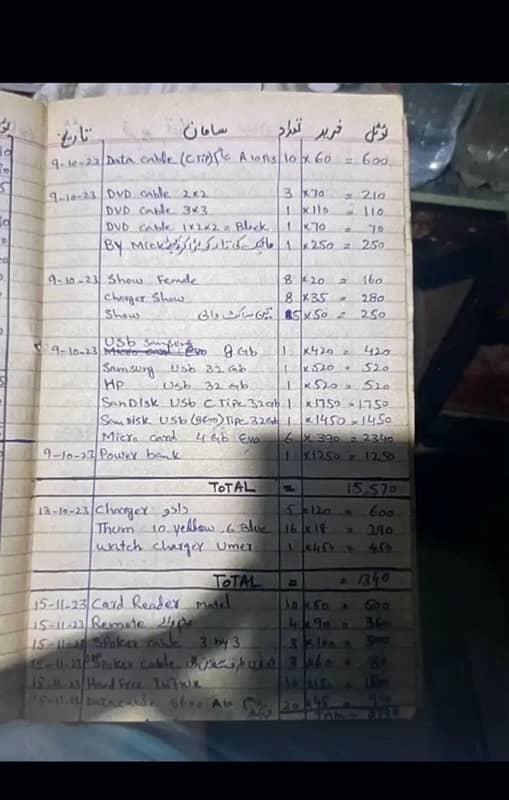 تاریخ سامان تعداد خرید ٹوٹل
9-10-23 Data cable 10 x 60 = 600
9-10-23 DVD cable 2x2 3 x 70 = 210
DVD cable 3x3 1 x 110 = 110
DVD cable 1x2x2 = Black 1 x 70 = 70
BY Mick 1 x 250 = 250
9-10-23 Show Female 8 x 20 = 160
charger Show 8 x 35 = 280
Show 5 x 50 = 250
USb Samsung
9-10-23 Micro card Evo 8 Gb 1 x 420 = 420
Samsung Usb 32 Gb 1 x 520 = 520
HP Usb 32 Gb 1 x 520 = 520
SanDisk USb C Tipe 32Gb 1 x 1750 = 1750
San disk USb Tipe 32Gb 1 x 1450 = 1450
Micro card 4 Gb Evo 6 x 390 = 2340
9-10-23 Power bank 1 x 1250 = 1250
TOTAL = 15,570
13-10-23 Charger دادو 5 x 120 = 600
Thum 10 yellow 6 Blue 16 x 18 = 290
watch charger Umer 1 x 450 = 450
TOTAL = = 1340
15-11-23 Card Reader 10 x 50 = 500
15-11-23 Remote 4 x 90 = 360
15-11-23 Spoker cable 3 by 3
15-11-23 Spoker cable
15-11-23 Hand Free
15-11-23 Data cable 20 x 45